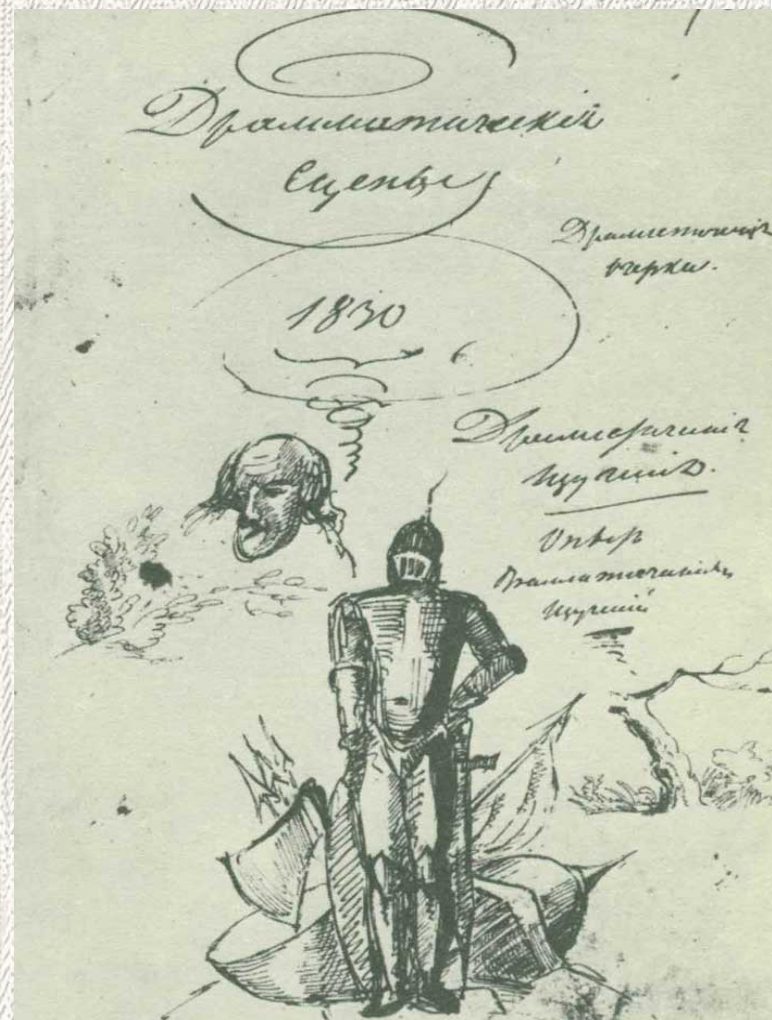 Драмматическiя
сцены
1830
Драматическiе
очерки.
Драматическiя
изученiя.
Опытъ
Драматическихъ
изученiй